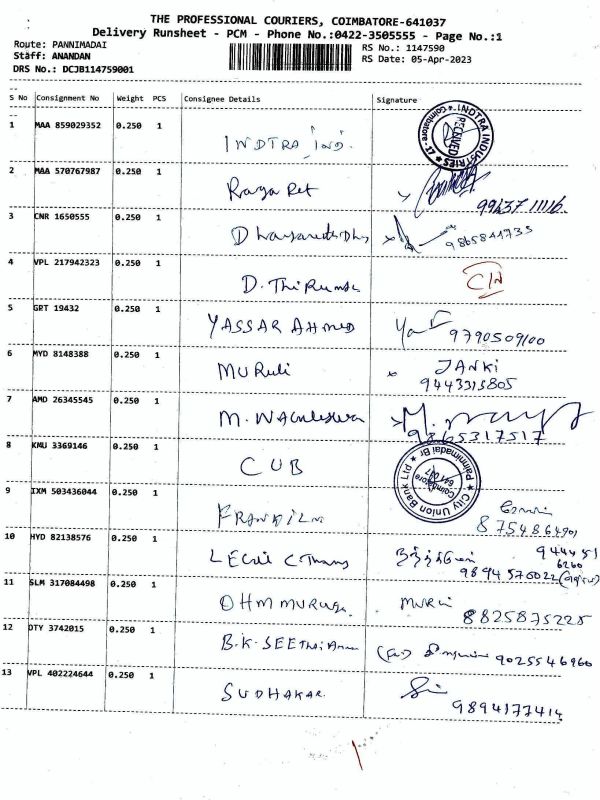 THE PROFESSIONAL COURIERS, COIMBATORE-641037
Delivery Runsheet - PCM - Phone No.:0422-3505555 - Page No.:1
Route: PANNIMADAI
RS No.: 1147590
Staff: ANANDAN
RS Date: 05-Apr-2023
DRS No.: DCJB114759001
S No Consignment No Weight PCS Consignee Details Signature
1 MAA 859029352 0.250 1 INDTRA Ind.
INDTRA INDUSTRIES Coimbatore - 17 RECEIVED
2 MAA 570767987 0.250 1
99437 11116
3 CNR 1650555 0.250 1
9865841735
4 VPL 217942323 0.250 1 D. Thirumu
5 GRT 19432 0.250 1 YASSAR AHMED
9790509100
6 MYD 8148388 0.250 1 MURuli JANKI
9443313805
7 AMD 26345545 0.250 1 M.
9865317517
8 KMU 3369146 0.250 1 CUB
City Union Bank Ltd Pannimadai Br Coimbatore 641 017
9 IXM 503436044 0.250 1 FRANKILN
8754864901
10 HYD 82138576 0.250 1
944451
6260
9894576022
11 SLM 317084498 0.250 1 OHM MURUGA MURLI
8825875225
12 DTY 3742015 0.250 1 B.K-SEETHAI
9025546960
13 VPL 402224644 0.250 1 SUDHAKAR
9894177414